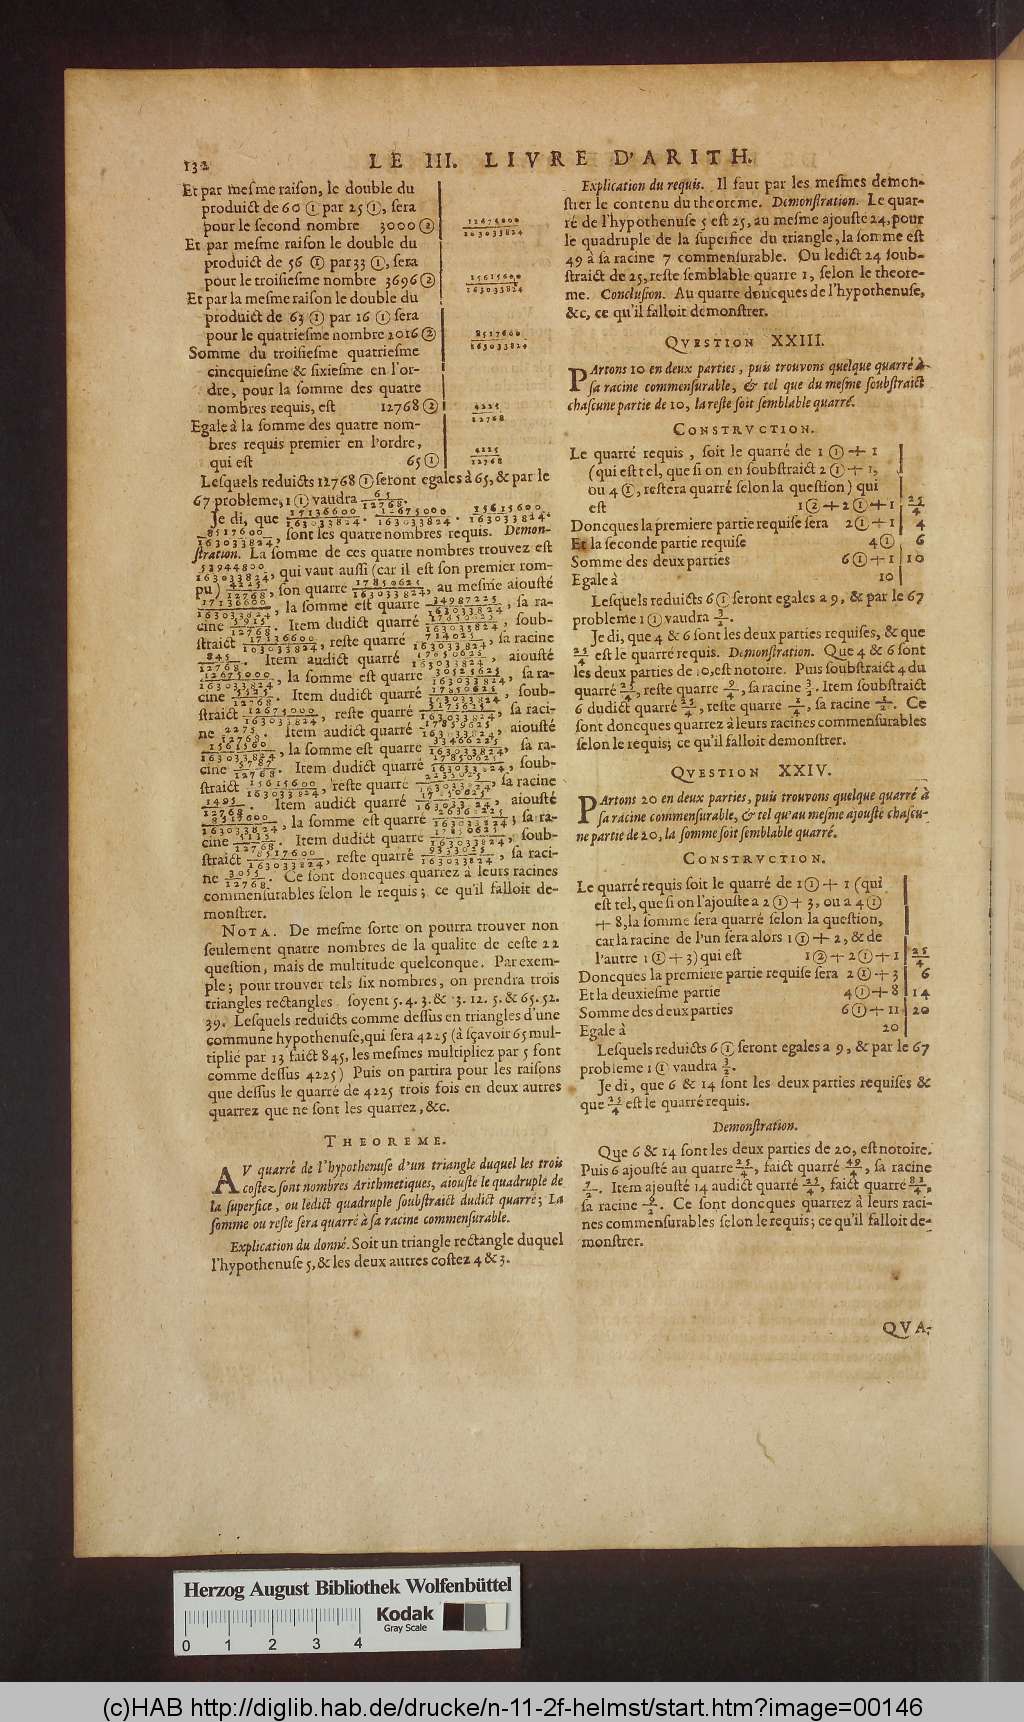 132
LE III. LIVRE D'ARITH.
Et par meſme raiſon, le double du
produict de 60 ① par 25 ①, ſera
pour le ſecond nombre 3000 ② 12675000/163033824
Et par meſme raiſon le double du
produict de 56 ① par 33 ①, ſera
pour le troiſieſme nombre 3696 ② 15615600/163033824
Et par la meſme raiſon le double du
produict de 63 ① par 16 ① ſera
pour le quatrieſme nombre 2016 ② 8517600/163033824
Somme du troiſieſme quatrieſme
cincquieſme & ſixieſme en l'or-
dre, pour la ſomme des quatre
nombres requis, eſt 12768 ② 4225/12768
Egale à la ſomme des quatre nom-
bres requis premier en l'ordre,
qui eſt 65 ① 4225/12768
Leſquels reduicts 12768 ① ſeront egales à 65, & par le
67 probleme, 1 ① vaudra 65/12768.
Je di, que 17136600/163033824. 12675000/163033824. 15615600/163033824.
8517600/163033824, ſont les quatre nombres requis. Demon-
ſtration. La ſomme de ces quatre nombres trouvez eſt
53944800/163033824, qui vaut auſſi (car il eſt ſon premier rom-
pu) 4225/12768, ſon quarre 17850625/163033824, au meſme aiouſté
17136600/163033824, la ſomme eſt quarre 34987225/163033824, ſa ra-
cine 5915/12768. Item dudict quarré 17850625/163033824, ſoub-
ſtraict 17136600/163033824, reſte quarré 714025/163033824, ſa racine
845/12768. Item audict quarré 17850625/163033824, aiouſté
12675000/163033824, la ſomme eſt quarre 30525625/163033824, ſa ra-
cine 5525/12768. Item dudict quarré 17850625/163033824, ſoub-
ſtraict 12675000/163033824, reſte quarré 5175625/163033824, ſa raci-
ne 2275/12768. Item audict quarré 17859625/163033824, aiouſté
1561560/163033824, la ſomme eſt quarre 33466225/163033824, ſa ra-
cine 5787/12768. Item dudict quarré 17850625/163033824, ſoub-
ſtraict 15615600/163033824, reſte quarre 2235025/163033824, ſa racine
1495/12768. Item audict quarré 17850625/163033824, aiouſté
8517600/163033824, la ſomme eſt quarré 26368225/163033824; ſa ra-
cine 5135/12768. Item dudict quarre 17850625/163033824, ſoub-
ſtraict 8517600/163033824, reſte quarré 9333025/163033824, ſa raci-
ne 3055/12768. Ce ſont doncques quarrez à leurs racines
commenſurables ſelon le requis; ce qu'il falloit de-
monſtrer.
NOTA. De meſme ſorte on pourra trouver non
ſeulement qnatre nombres de la qualite de ceſte 22
queſtion, mais de multitude quelconque. Par exem-
ple; pour trouver tels ſix nombres, on prendra trois
triangles rectangles ſoyent 5. 4. 3. & 13. 12. 5. & 65. 52.
39. Leſquels reduicts comme deſſus en triangles d'une
commune hypothenuſe, qui ſera 4225 (à ſçavoir 65 mul-
tiplié par 13 faict 845, les meſmes multipliez par 5 font
comme deſſus 4225) Puis on partira pour les raiſons
que deſſus le quarré de 4225 trois fois en deux autres
quarrez que ne ſont les quarrez, &c.
THEOREME.
AV quarré de l'hypothenuſe d'un triangle duquel les trois
coſtez ſont nombres Arithmetiques, aiouſte le quadruple de
la ſuperfice, ou ledict quadruple ſoubſtraict dudict quarré; La
ſomme ou reſte ſera quarré à ſa racine commenſurable.
Explication du donné. Soit un triangle rectangle duquel
l'hypothenuſe 5, & les deux autres coſtez 4 & 3.
Explication du requis. Il faut par les meſmes demon-
ſtrer le contenu du theoreme. Demonſtration. Le quar-
ré de l'hypothenuſe 5 eſt 25, au meſme ajouſté 24, pour
le quadruple de la ſuperfice du triangle, la ſomme eſt
49 à ſa racine 7 commenſurable. Ou ledict 24 ſoub-
ſtraict de 25, reſte ſemblable quarre 1, ſelon le theore-
me. Concluſion. Au quarre doncques de l'hypothenuſe,
&c, ce qu'il falloit demonſtrer.
QVESTION XXIII.
PArtons 10 en deux parties, puis trouvons quelque quarré à
ſa racine commenſurable, & tel que du meſme ſoubſtraict
chaſcune partie de 10, la reſte ſoit ſemblable quarré.
CONSTRVCTION.
Le quarré requis, ſoit le quarré de 1 ① + 1
(qui eſt tel, que ſi on en ſoubſtraict 2 ① + 1,
ou 4 ①, reſtera quarré ſelon la queſtion) qui
eſt 1 ② + 2 ① + 1 25/4
Doncques la premiere partie requiſe ſera 2 ① + 1 4
Et la ſeconde partie requiſe 4 ① 6
Somme des deux parties 6 ① + 1 10
Egale à 10
Leſquels reduicts 6 ① ſeront egales a 9, & par le 67
probleme 1 ① vaudra 3/2.
Je di, que 4 & 6 ſont les deux parties requiſes, & que
25/4 eſt le quarré requis. Demonſtration. Que 4 & 6 ſont
les deux parties de 10, eſt notoire. Puis ſoubſtraict 4 du
quarré 25/4, reſte quarre 9/4, ſa racine 3/2. Item ſoubſtraict
6 dudict quarré 25/4, reſte quarré 1/4, ſa racine 1/2. Ce
ſont doncques quarrez à leurs racines commenſurables
ſelon le requis; ce qu'il falloit demonſtrer.
QVESTION XXIV.
PArtons 20 en deux parties, puis trouvons quelque quarré à
ſa racine commenſurable, & tel qu'au meſme ajouſté chaſcu-
ne partie de 20, la ſomme ſoit ſemblable quarré.
CONSTRVCTION.
Le quarré requis ſoit le quarré de 1 ① + 1 (qui
eſt tel, que ſi on l'ajouſte a 2 ① + 3, ou a 4 ①
+ 8, la ſomme ſera quarré ſelon la queſtion,
car la racine de l'un ſera alors 1 ① + 2, & de
l'autre 1 ① + 3) qui eſt 1 ② + 2 ① + 1 25/4
Doncques la premiere partie requiſe ſera 2 ① + 3 6
Et la deuxieſme partie 4 ① + 8 14
Somme des deux parties 6 ① + 11 20
Egale à 20
Leſquels reduicts 6 ① ſeront egales a 9, & par le 67
probleme 1 ① vaudra 3/2.
Je di, que 6 & 14 ſont les deux parties requiſes &
que 25/4 eſt le quarré requis.
Demonſtration.
Que 6 & 14 ſont les deux parties de 20, eſt notoire.
Puis 6 ajouſté au quarre 25/4, faict quarré 49/4, ſa racine
7/2. Item ajouſté 14 audict quarré 25/4, faict quarré 81/4,
ſa racine 9/2. Ce ſont doncques quarrez à leurs raci-
nes commenſurables ſelon le requis; ce qu'il falloit de-
monſtrer.
QVA-
Herzog August Bibliothek Wolfenbüttel
0 1 2 3 4
Kodak
Gray Scale
(c)HAB http://diglib.hab.de/drucke/n-11-2f-helmst/start.htm?image=00146